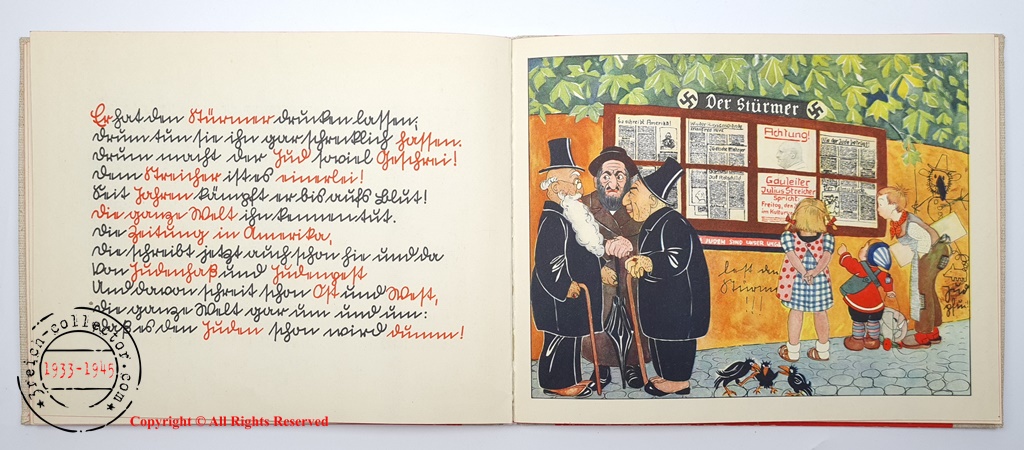 Er hat den Stürmer drucken lassen;
Drum tun sie ihn gar schrecklich hassen.
Drum macht der Jud soviel Geschrei!
Dem Streicher ist es einerlei!
Seit Jahren kämpft er bis auf's Blut!
Die ganze Welt ihn kennen tut.
Die Zeitung in Amerika,
Die schreibt jetzt auch schon hie und da
Von Judenhaß und Judenpest
Und davon schreit schon Ost und West,
Die ganze Welt gar um und um:
es den Juden schon wird dumm!
3reich-collector.com
1933-1945
Copyright © All Rights Reserved
Der Stürmer
So schreibt Amerika!
Achtung!
Gauleiter
Julius Streicher
spricht
Freitag, den
im Kultur
JUDEN SIND UNSER
lest den
Stürmer
!!!